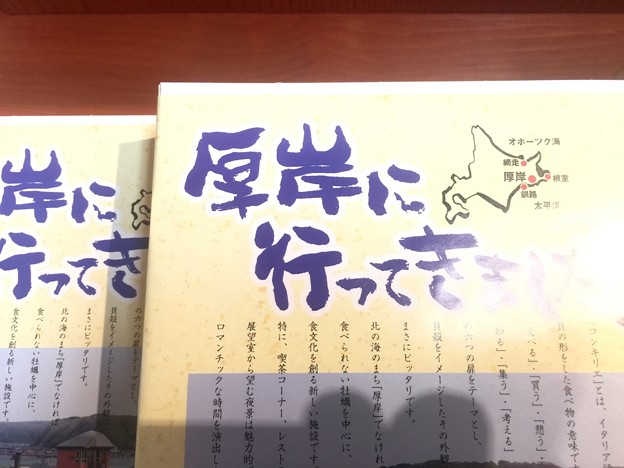 厚岸に
行ってきました
オホーツク海
網走
厚岸
根室
釧路
太平洋
「コンキリエ」とは、イタリア語
貝の形をした食べ物の意味で
食べる」・「買う」・「憩う」・
知る」・「集う」・「考える」
の六つの扉をテーマとし、
貝殻をイメージしたその外観
まさにピッタリです。
北の海のまち「厚岸」でなけれ
食べられない牡蠣を中心に、
食文化を創る新しい施設です
特に、喫茶コーナー、レスト
展望室から望む夜景は魅力的
ロマンチックな時間を演出し
岸に
行ってき
の六つの扉をテーマとし、
貝殻をイメージしたその外観
まさにピッタリです。
北の海のまち「厚岸」でなければ
食べられない牡蠣を中心に、
食文化を創る新しい施設です。